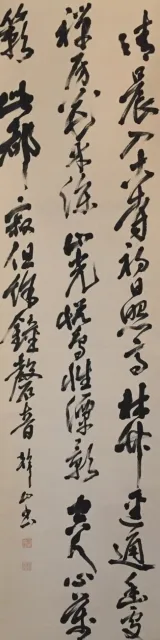 清晨入古寺初日照高林竹逕通幽處
禪房花木深山光悦鳥性潭影空人心萬
籟此都寂但餘鐘磬音 山書